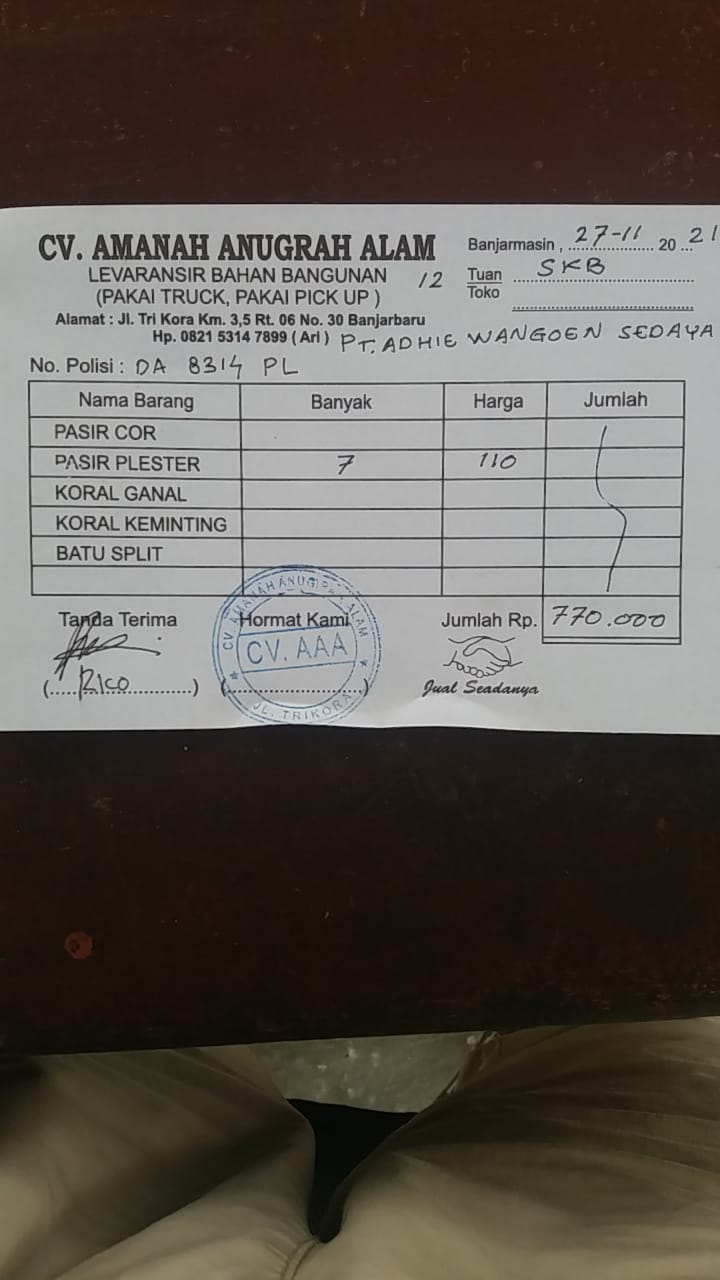 CV. AMANAH ANUGRAH ALAM
LEVARANSIR BAHAN BANGUNAN
(PAKAI TRUCK, PAKAI PICK UP )
Alamat : Jl. Tri Kora Km. 3,5 Rt. 06 No. 30 Banjarbaru
Hp. 0821 5314 7899 ( Ari )
12
Banjarmasin , 27-11 20 21
Tuan SKB
Toko
PT. ADHIE WANGOEN SEDAYA
No. Polisi : DA 8314 PL
Nama Barang Banyak Harga Jumlah
PASIR COR
PASIR PLESTER 7 110
KORAL GANAL
KORAL KEMINTING
BATU SPLIT
Tanda Terima Hormat Kami Jumlah Rp. 770.000
CV. AMANAH ANUGRAH ALAM
CV. AAA
JL. TRIKORA
(....RICO............) (........................)
Jual Seadanya